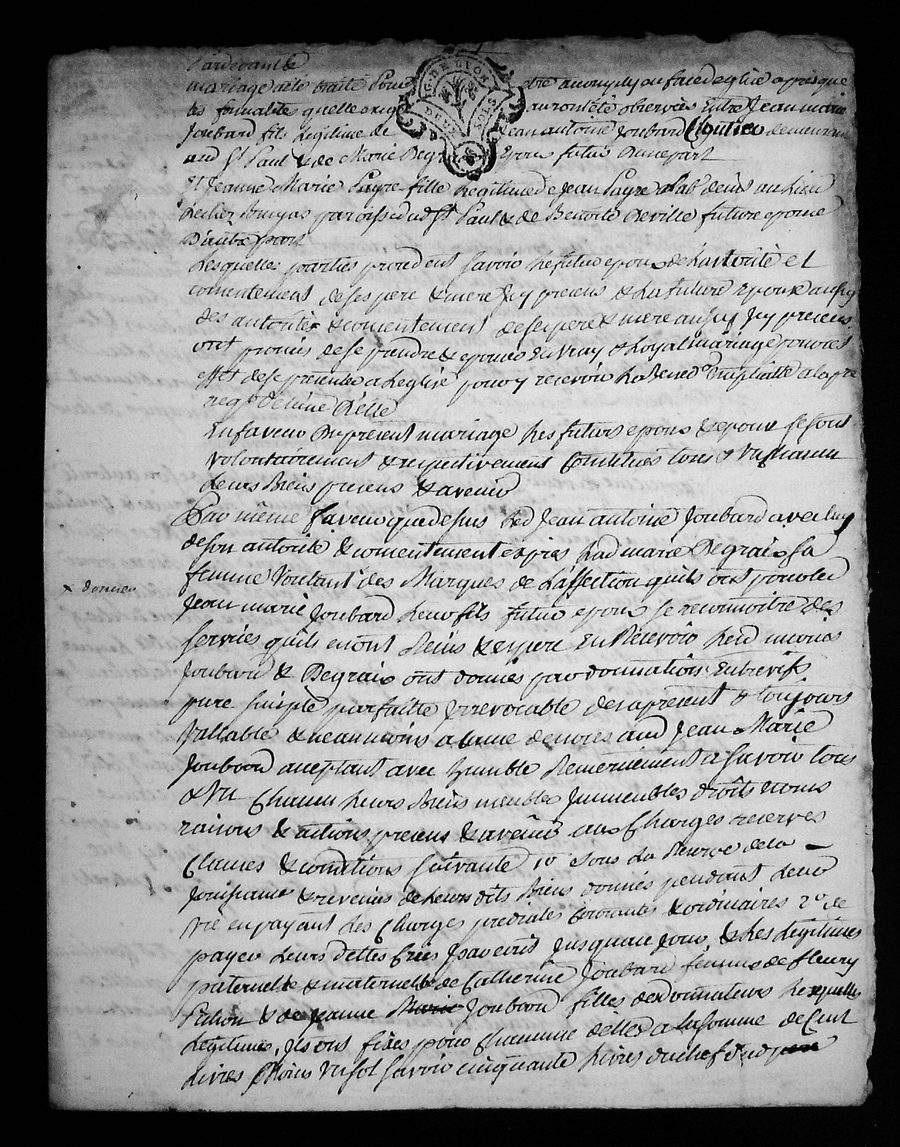 Pardevant le
mariage a été traité pour être accomply en face d'eglise apres que
les formalité quelle exige auront été observées Entre Jean marie
Joubard fils Legitime de Jean antoine Joubard Cloutier demeurant
aud St Paul & de Marie Degraix Epoux futur D'une part
Et Jeanne Marie Payre fille Legitime de Jean Payre & lab
paroisse dud St Paul & de Benoite Deville future epouse
D'autre part
Lesquelles parties procedent savoir le futur epoux de L'autorité et
consentement de ses pere & mere Jcy presens & La future Epouse aussy
des autorités & consentement de ses pere & mere aussy Jcy presens
ont promis de se prendre & epouser En vray & Loyal mariage pour cet
effet de se presenter a L'eglise pour y recevoir La Bened on Nuptialle a la pre
req on de L'une D'elle
En faveur Du present mariage Les futurs epoux & epouse se sont
volontairement & respectivement Constitués tous & Un chacun
Leurs Biens presens & avenir
Par même faveur que dessus Led Jean antoine Joubard avec luy
de son autorité & consentement exprès Lad marie Degraix Sa
femme Voulant des Marques de L'affection quils ont pour led
x donner
Jean marie Joubard Leur fils futur epoux Se reconnoitre des
services quils en ont Reçus & espere En Recevoir Lesd maries
Joubard & Degraix ont donnés par donnation Entrevifs
pure simple parfaitte & irrevocable des apresent & toujours
Vallable & neanmoins a cause de noces aud Jean Marie
Joubard acceptant avec humble Remerciement a Savoir tous
& Un Chacun Leurs Biens meubles Jmmeubles droits noms
raisons & actions presens & avenir aux Charges reserves
Clauses & conditions suivante 1o sous La Reserve de la
Jouissance & revenus de Leurs dits Biens donnés pendant Leur
Vie en payant Les Charges prediales Courantes & ordinaires 2o de
payer Leurs dettes Crées Jusqua ce Jour & Les Legitimes
paternelle & maternelle de Catherine Joubard femme de fleury
& de Jeanne Marie Joubard filles des donnateurs Lesquelles
Legitimes Jls ont fixés pour Chacune delles a la somme de Cent
Livres Moins Un sol Savoir cinquante Livres du chef dud